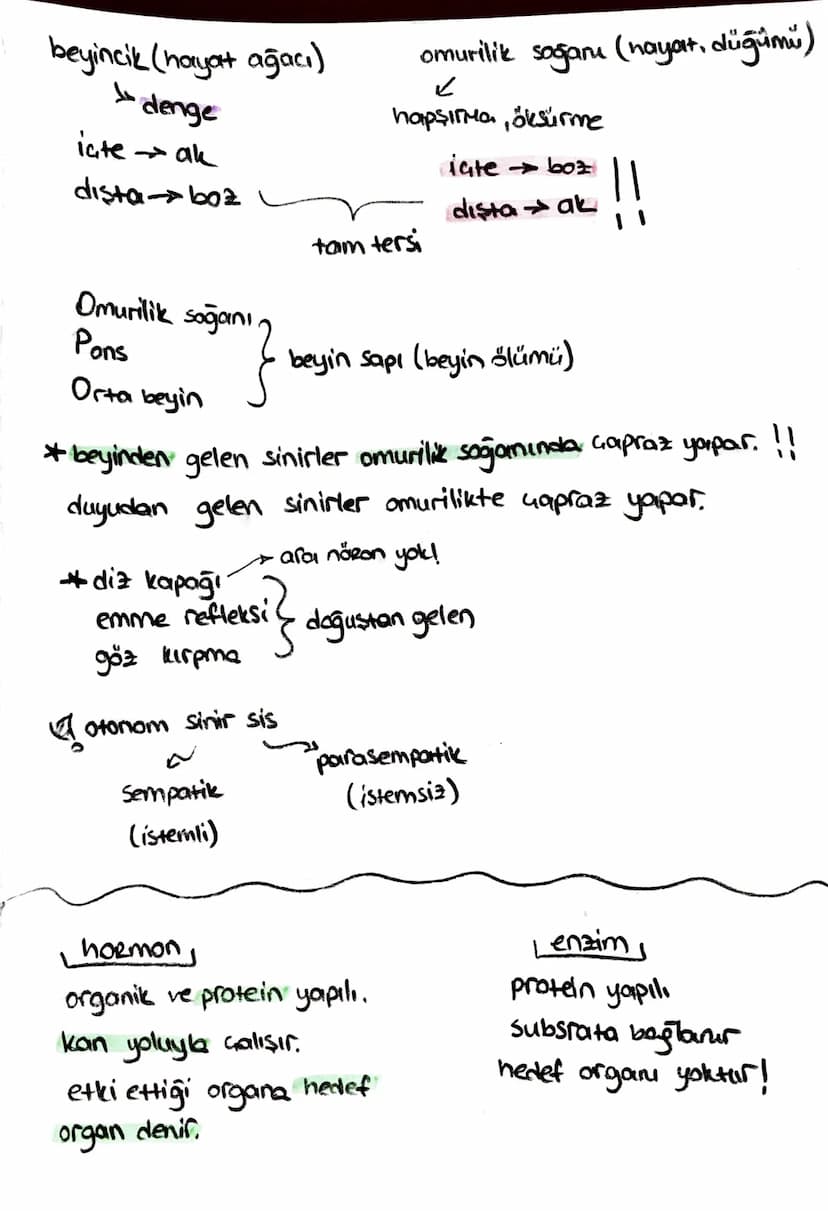 beyincik (hayat ağacı)
denge
içte → ak
dışta → boz
omurilik soğanı (hayat düğümü)
hapşırma, öksürme
içte → boz !!
dışta → ak
tam tersi
Omurilik soğanı
Pons
Orta beyin
beyin sapı (beyin ölümü)
* beyinden gelen sinirler omurilik soğanında çapraz yapar. !!
duyudan gelen sinirler omurilikte çapraz yapar.
→ ara nöron yok!
* diz kapağı
emme refleksi
göz kırpma
doğuştan gelen
otonom sinir sis
sempatik
(istemli)
parasempatik
(istemsiz)
hormon
organik ve protein yapılı.
kan yoluyla çalışır.
etki ettiği organa hedef
organ denir.
enzim
protein yapılı
substrata bağlanır
hedef organı yoktur!